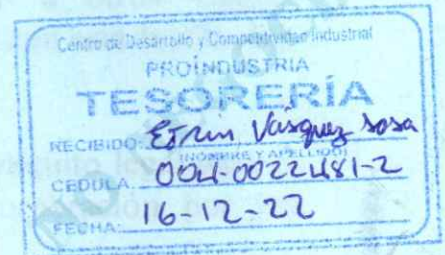 Centro de Desarrollo y Competitividad Industrial
PROINDUSTRIA
TESORERÍA
RECIBIDO: Efrin Vásquez Sosa
(NOMBRE Y APELLIDO)
CEDULA: 004-0022481-2
FECHA: 16-12-22
NO